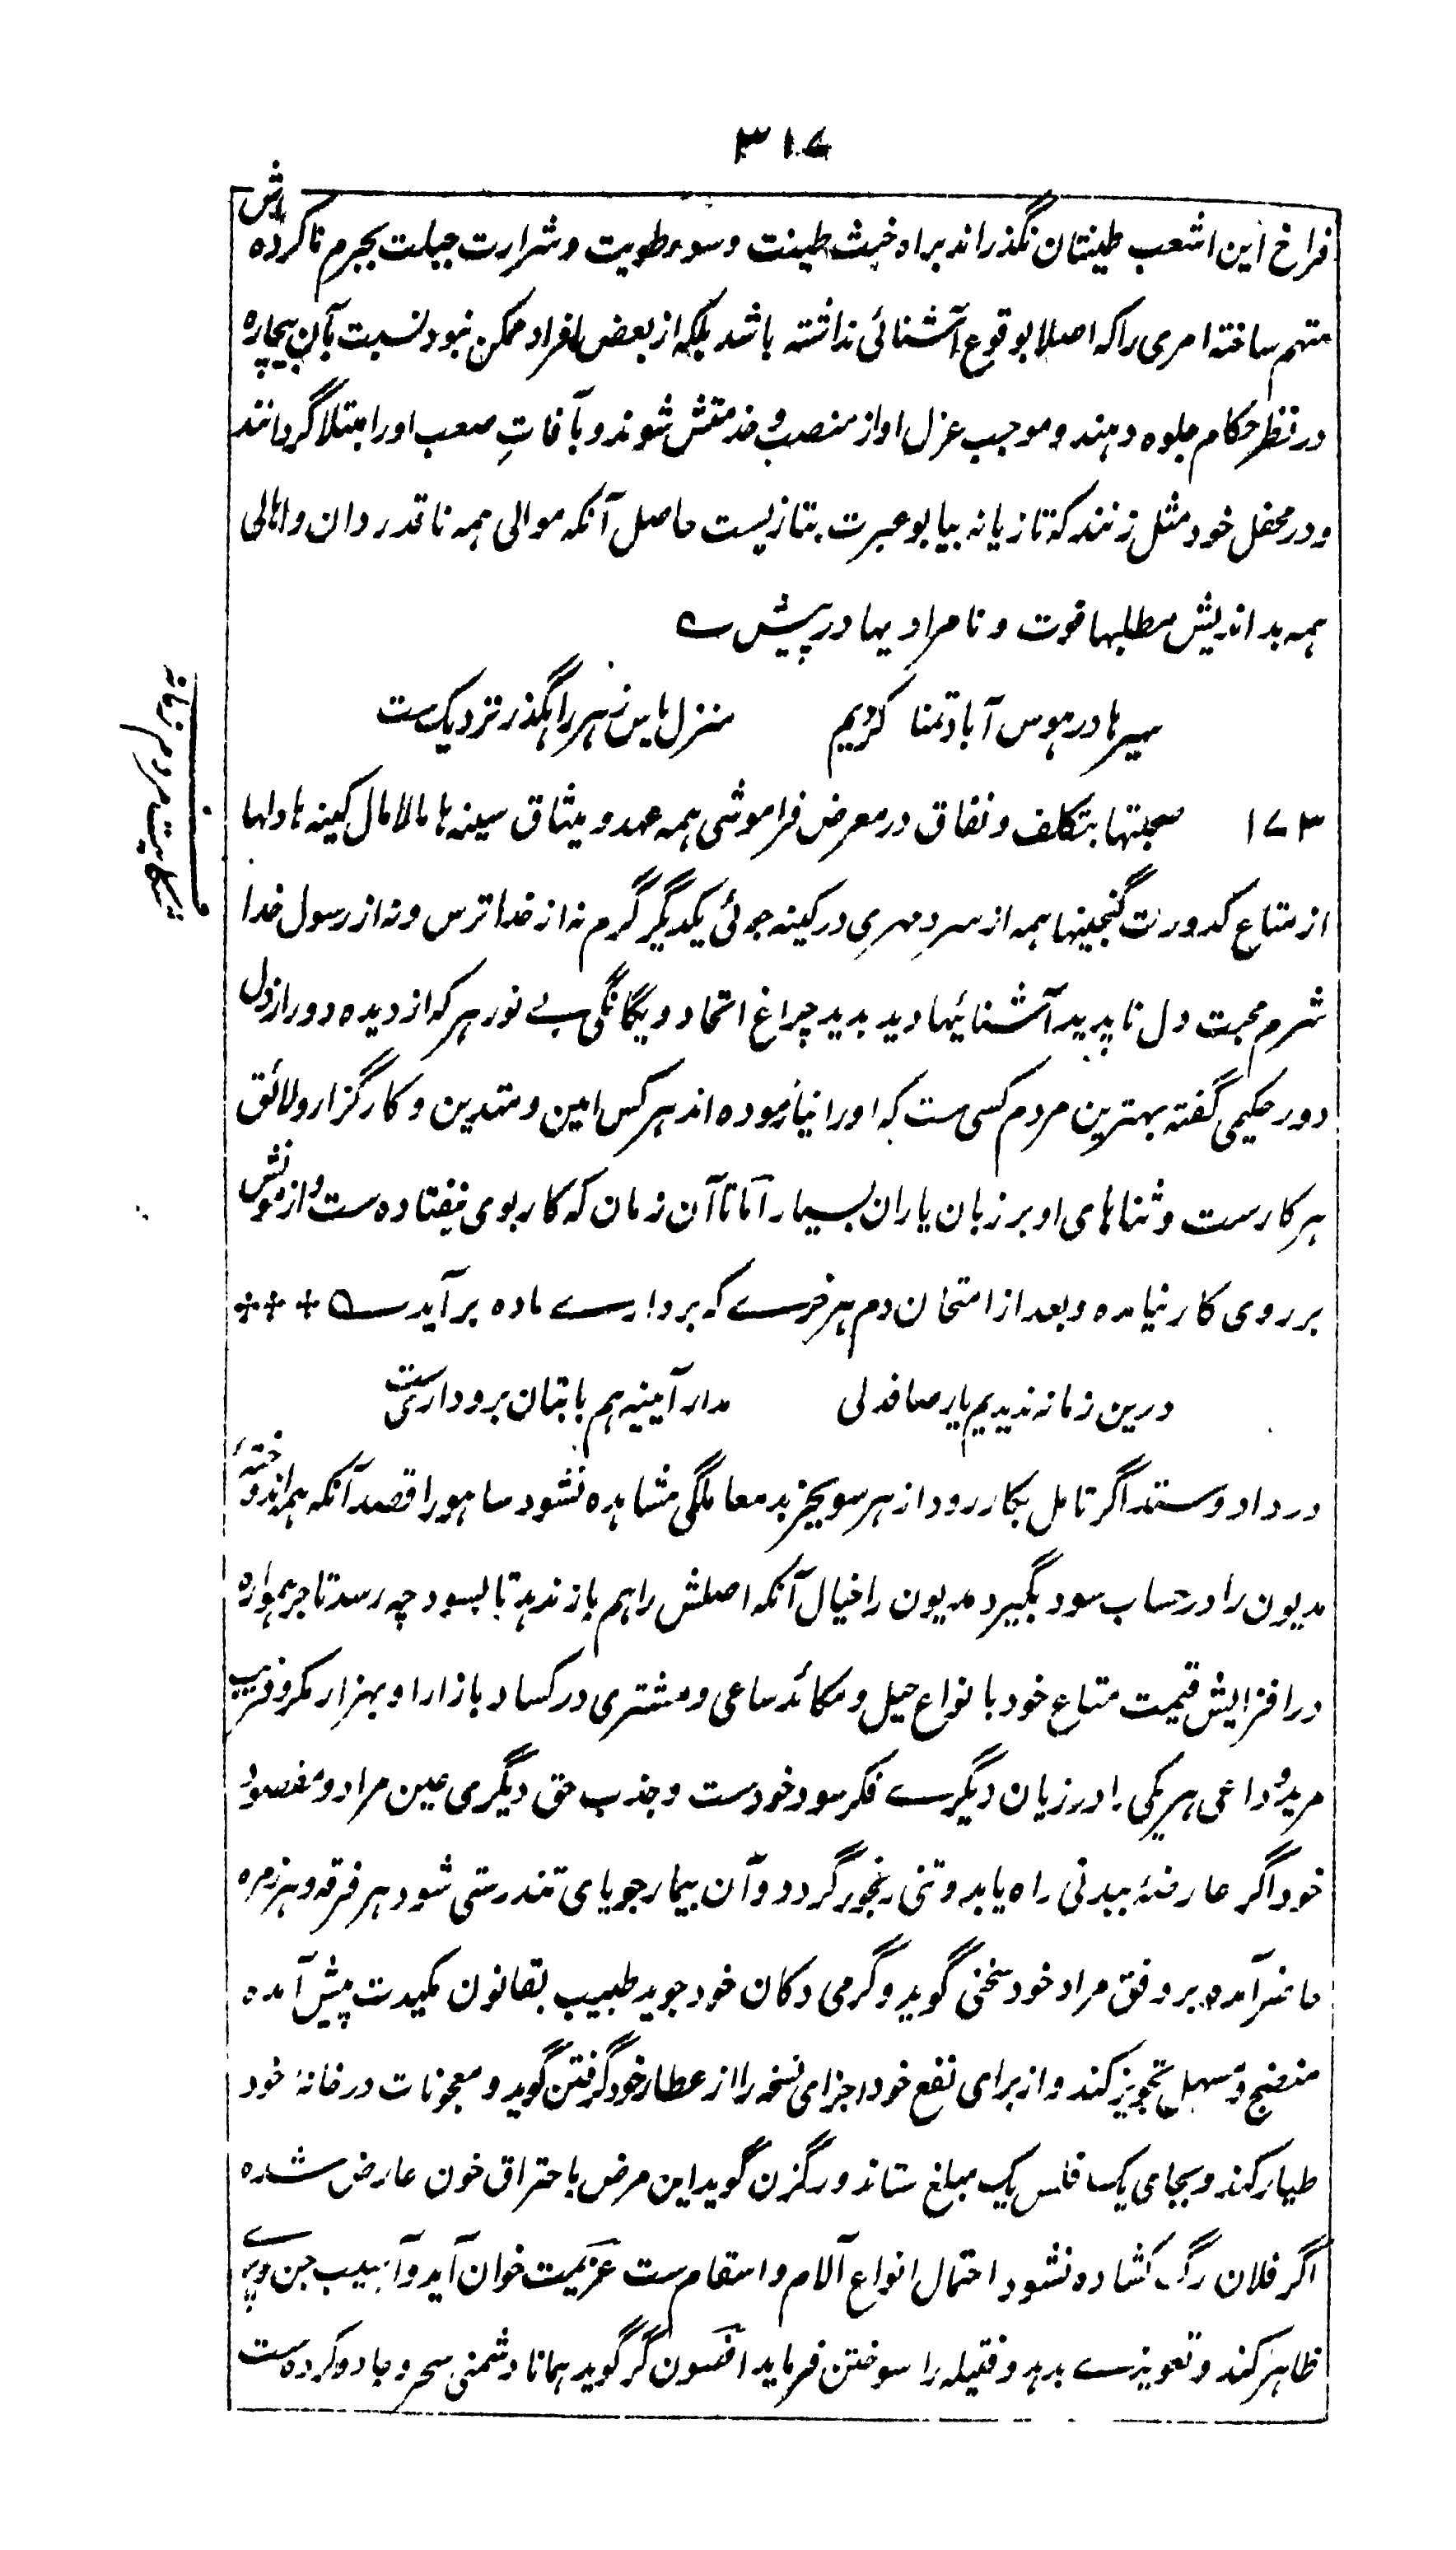 ۳۱۷
فراخ این اشعب طینتان نگذراند براه خبث طینت و سوء طویت و شرارت جبلت بجرم ناکرده اش
متهم ساخته امری را که اصلا بوقوع آشنائی نداشته باشد بلکه از بعض افراد ممکن نبود نسبت بآن بیچاره
در نظر حکام جلوه دهند و موجب عزل او از منصب و خدمتش شوند و بآفاتِ صعب او را مبتلا گردانند
و در محفل خود مثل زنند که تازیانه بیابو عبرت بتازیست حاصل آنکه موالی همه ناقدردان و اهالی
همه بداندیش مطلبها فوت و نامرادیها در پیش ے
سیرها در هوس آباد تمنا کردیم
منزل یاس ز هر راهگذر نزدیکست
۱۷۳ صحبتها بتکلف و نفاق در معرض فراموشی همه عهد و میثاق سینه ها مالامال کینه ها دلها
شکایت مردم زمانه
از متاع کدورت گنجینها همه از سردِ مهریِ در کینه جوئی یکدیگر گرم نه از خدا ترس و نه از رسول خدا
شرم محبت دل ناپدید آشنائیها دید بدید چراغ اتحاد و یگانگی بے نور هر که از دیده دور از دل
دور حکیمی گفته بهترین مردم کسی ست که او را نیازموده اند هر کس امین و متدین و کارگزار و لائق
هر کارست و ثناهای او بر زبان یاران بسیار آما تا آن زمان که کار بوی نیفتاده ست و آزمونش
بر روی کار نیامده و بعد از امتحان دم هر خرے که بردارے ماده برآید ے
درین زمانه ندیدیم یار صافدلی
مدار آیینه هم با بتان برودارست
در داد و ستد اگر تامل بکار رود از هر سو بجز بد معاملگی مشاهده نشود ساهو را قصد آنکه هم اندوخته
مدیون را در حساب سود بگیرد مدیون را خیال آنکه اصلش را هم باز ندهد تا بسود چه رسد تاجر همواره
در افزایش قیمت متاع خود بانواع حیل و مکائد ساعی و مشتری در کساد بازار او بهزار مکر و فریب
مرید و داعی هر یکی را در زیان دیگرے فکر سود خودست و جذب حق دیگری عین مراد و مقصود
خود اگر عارضهٔ ببدنی راه یابد و تنی رنجور گردد و آن بیمار جویای تندرستی شود هر فرقه و هر زمره
حاضر آمده بر وفق مراد خود سخنی گوید و گرمی دکان خود جوید طبیب بقانون مکیدت پیش آمده
منضج و مسهل تجویز کند و از برای نفع خود اجزای نسخه را از عطار خود گرفتن گوید و معجونات در خانهٔ خود
طیار کند و بجای یک فلس یک مبلغ ستاند و رگزن گوید این مرض باحتراق خون عارض شده
اگر فلان رگ کشاده نشود احتمال انواع آلام و اسقام ست عزیمت خوان آید و آسیب جن و پرے
ظاهر کند و تعویذے بدهد و فتیله را سوختن فرماید افسون گر گوید همانا دشمنی سحر و جادو کرده ست